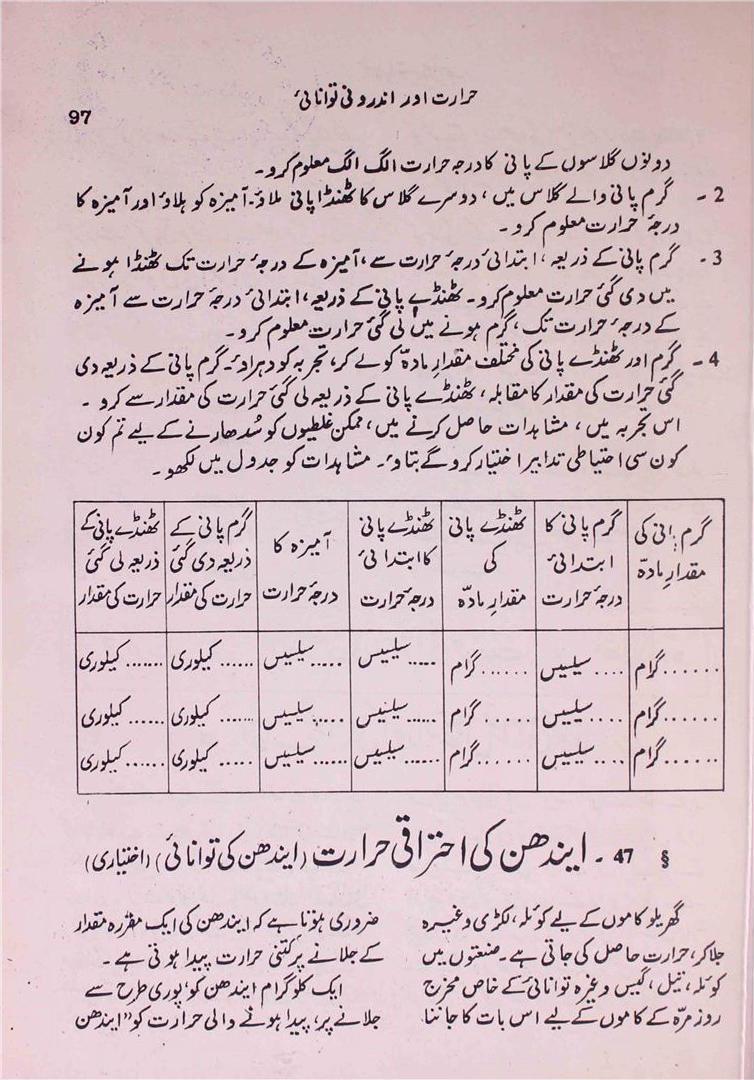 حرارت اور اندرونی توانائی
97
دونوں گلاسوں کے پانی کا درجہ حرارت الگ الگ معلوم کرو۔
2 - گرم پانی والے گلاس میں، دوسرے گلاس کا ٹھنڈا پانی ملاؤ۔ آمیزہ کو ہلاؤ اور آمیزہ کا
درجۂ حرارت معلوم کرو۔
3 - گرم پانی کے ذریعہ، ابتدائی درجۂ حرارت سے، آمیزہ کے درجۂ حرارت تک ٹھنڈا ہونے
میں دی گئی حرارت معلوم کرو۔ ٹھنڈے پانی کے ذریعہ، ابتدائی درجۂ حرارت سے آمیزہ
کے درجۂ حرارت تک، گرم ہونے میں لی گئی حرارت معلوم کرو۔
4 - گرم اور ٹھنڈے پانی کی مختلف مقدارِ مادّہ کو لے کر، تجربہ کو دہراؤ۔ گرم پانی کے ذریعہ دی
گئی حرارت کی مقدار کا مقابلہ، ٹھنڈے پانی کے ذریعہ لی گئی حرارت کی مقدار سے کرو۔
اس تجربہ میں، مشاہدات حاصل کرنے میں، ممکن غلطیوں کو سُدھارنے کے لیے تم کون
کون سی احتیاطی تدابیر اختیار کروگے بتاؤ۔ مشاہدات کو جدول میں لکھو۔
گرم پانی کی مقدارِ مادّہ
گرم پانی کا ابتدائی درجۂ حرارت
ٹھنڈے پانی کی مقدارِ مادّہ
ٹھنڈے پانی کا ابتدائی درجۂ حرارت
آمیزہ کا درجۂ حرارت
گرم پانی کے ذریعہ دی گئی حرارت کی مقدار
ٹھنڈے پانی کے ذریعہ لی گئی حرارت کی مقدار
......گرام ....سیلسیس ......گرام .....سیلسیس .....سیلسیس ......کیلوری .......کیلوری
......گرام ....سیلسیس ......گرام ......سیلسیس ......سیلسیس .......کیلوری ......کیلوری
......گرام ....سیلسیس ......گرام ......سیلسیس ......سیلسیس .....کیلوری ......کیلوری
§ 47 - ایندھن کی احتراقی حرارت (ایندھن کی توانائی) (اختیاری)
گھریلو کاموں کے لیے کوئلہ، لکڑی وغیرہ
جلاکر، حرارت حاصل کی جاتی ہے۔ صنعتوں میں
کوئلہ، تیل، گیس وغیرہ توانائی کے خاص مخرج
روزمرّہ کے کاموں کے لیے اس بات کا جاننا
ضروری ہوتا ہے کہ ایندھن کی ایک مقرّرہ مقدار
کے جلانے پر کتنی حرارت پیدا ہوتی ہے۔
ایک کلوگرام ایندھن کو، پوری طرح سے
جلانے پر، پیدا ہونے والی حرارت کو "ایندھن